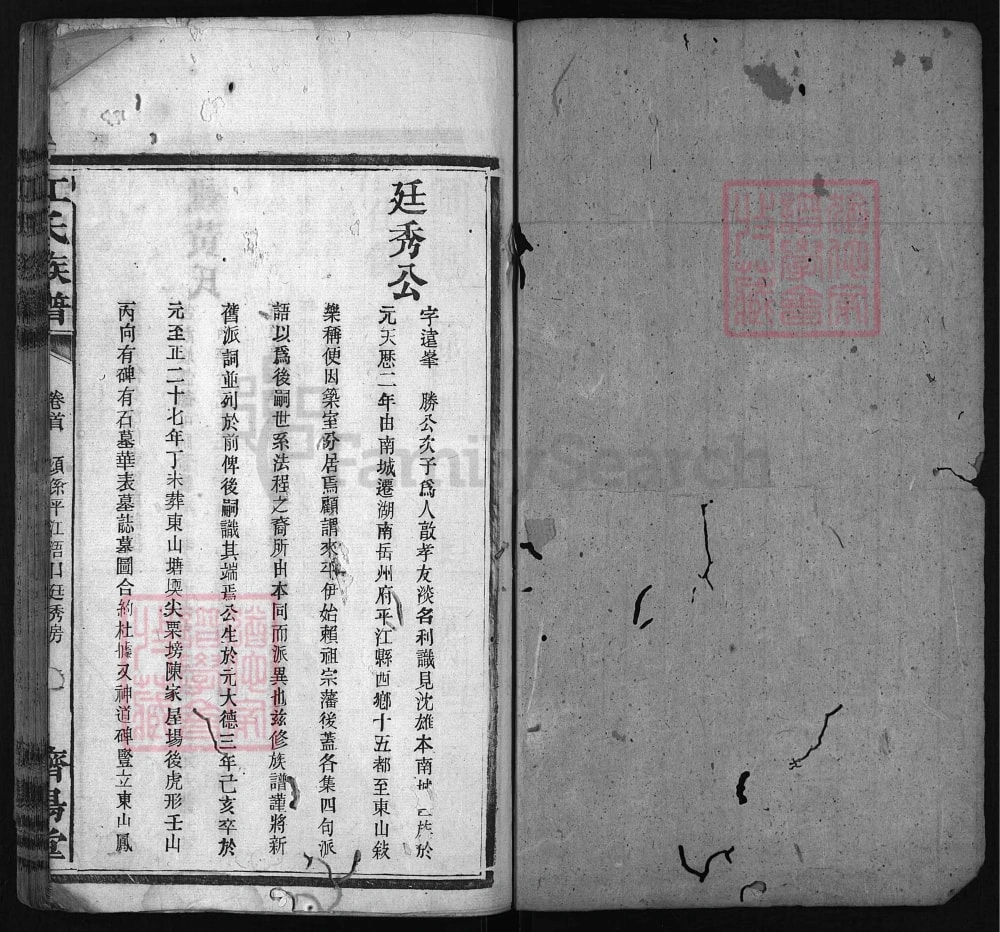 廷秀公
字遠峯 勝公次子爲人敦孝友淡名利識見沈雄本南城 族於
元天厯二年由南城遷湖南岳州府平江縣西鄉十五都至東山敍
樂稱便因築室分居焉顧謂來平伊始賴祖宗藩後蓋各集四句派
語以爲後嗣世系法程之裔所由本同而派異也茲修族譜謹將新
舊派詞並列於前俾後嗣識其端焉公生於元大德三年己亥卒於
元至正二十七年丁未葬東山塘塅尖栗塝陳家屋場後虎形壬山
丙向有碑有石墓華表墓誌墓圖合約杜據又神道碑豎立東山鳳
江氏族譜
卷首
平江 廷秀房
濟陽堂
FamilySearch